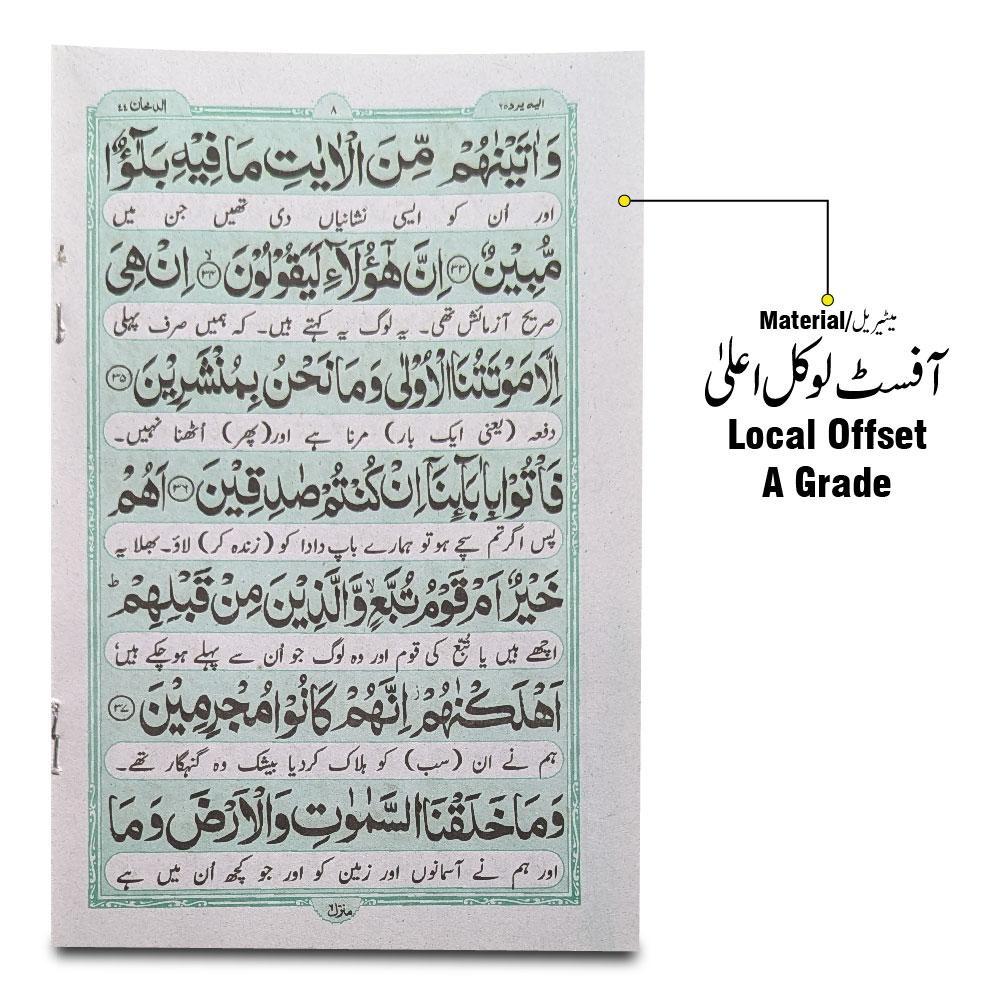 الیه یرد ۲۵
۸
الدخان ۴۴
وَاٰتَیْنٰهُمْ مِّنَ الْاٰیٰتِ مَا فِیْهِ بَلٰٓؤٌا
اور اُن کو ایسی نشانیاں دی تھیں جن میں
مُّبِیْنٌ ﴿۳۳﴾ اِنَّ هٰٓؤُلَآءِ لَیَقُوْلُوْنَ ﴿۳۴﴾ اِنْ هِیَ
صریح آزمائش تھی۔ یہ لوگ یہ کہتے ہیں۔ کہ ہمیں صرف پہلی
اِلَّا مَوْتَتُنَا الْاُوْلٰی وَمَا نَحْنُ بِمُنْشَرِیْنَ ﴿۳۵﴾
دفعہ (یعنی ایک بار) مرنا ہے اور(پھر) اُٹھنا نہیں۔
فَاْتُوْا بِاٰبَآئِنَاۤ اِنْ كُنْتُمْ صٰدِقِیْنَ ﴿۳۶﴾ اَهُمْ
پس اگر تم سچے ہو تو ہمارے باپ دادا کو (زندہ کر) لاؤ۔ بھلا یہ
خَیْرٌ اَمْ قَوْمُ تُبَّعٍ ۙ وَّالَّذِیْنَ مِنْ قَبْلِهِمْ ؕ
اچھے ہیں یا تُبّع کی قوم اور وہ لوگ جو اُن سے پہلے ہوچکے ہیں
اَهْلَكْنٰهُمْ ز اِنَّهُمْ كَانُوْا مُجْرِمِیْنَ ﴿۳۷﴾
ہم نے ان (سب) کو ہلاک کردیا بیشک وہ گنہگار تھے۔
وَمَا خَلَقْنَا السَّمٰوٰتِ وَالْاَرْضَ وَمَا
اور ہم نے آسمانوں اور زمین کو اور جو کچھ اُن میں ہے
منزل ٦
Material/میٹیریل
آفسٹ لوکل اعلیٰ
Local Offset
A Grade